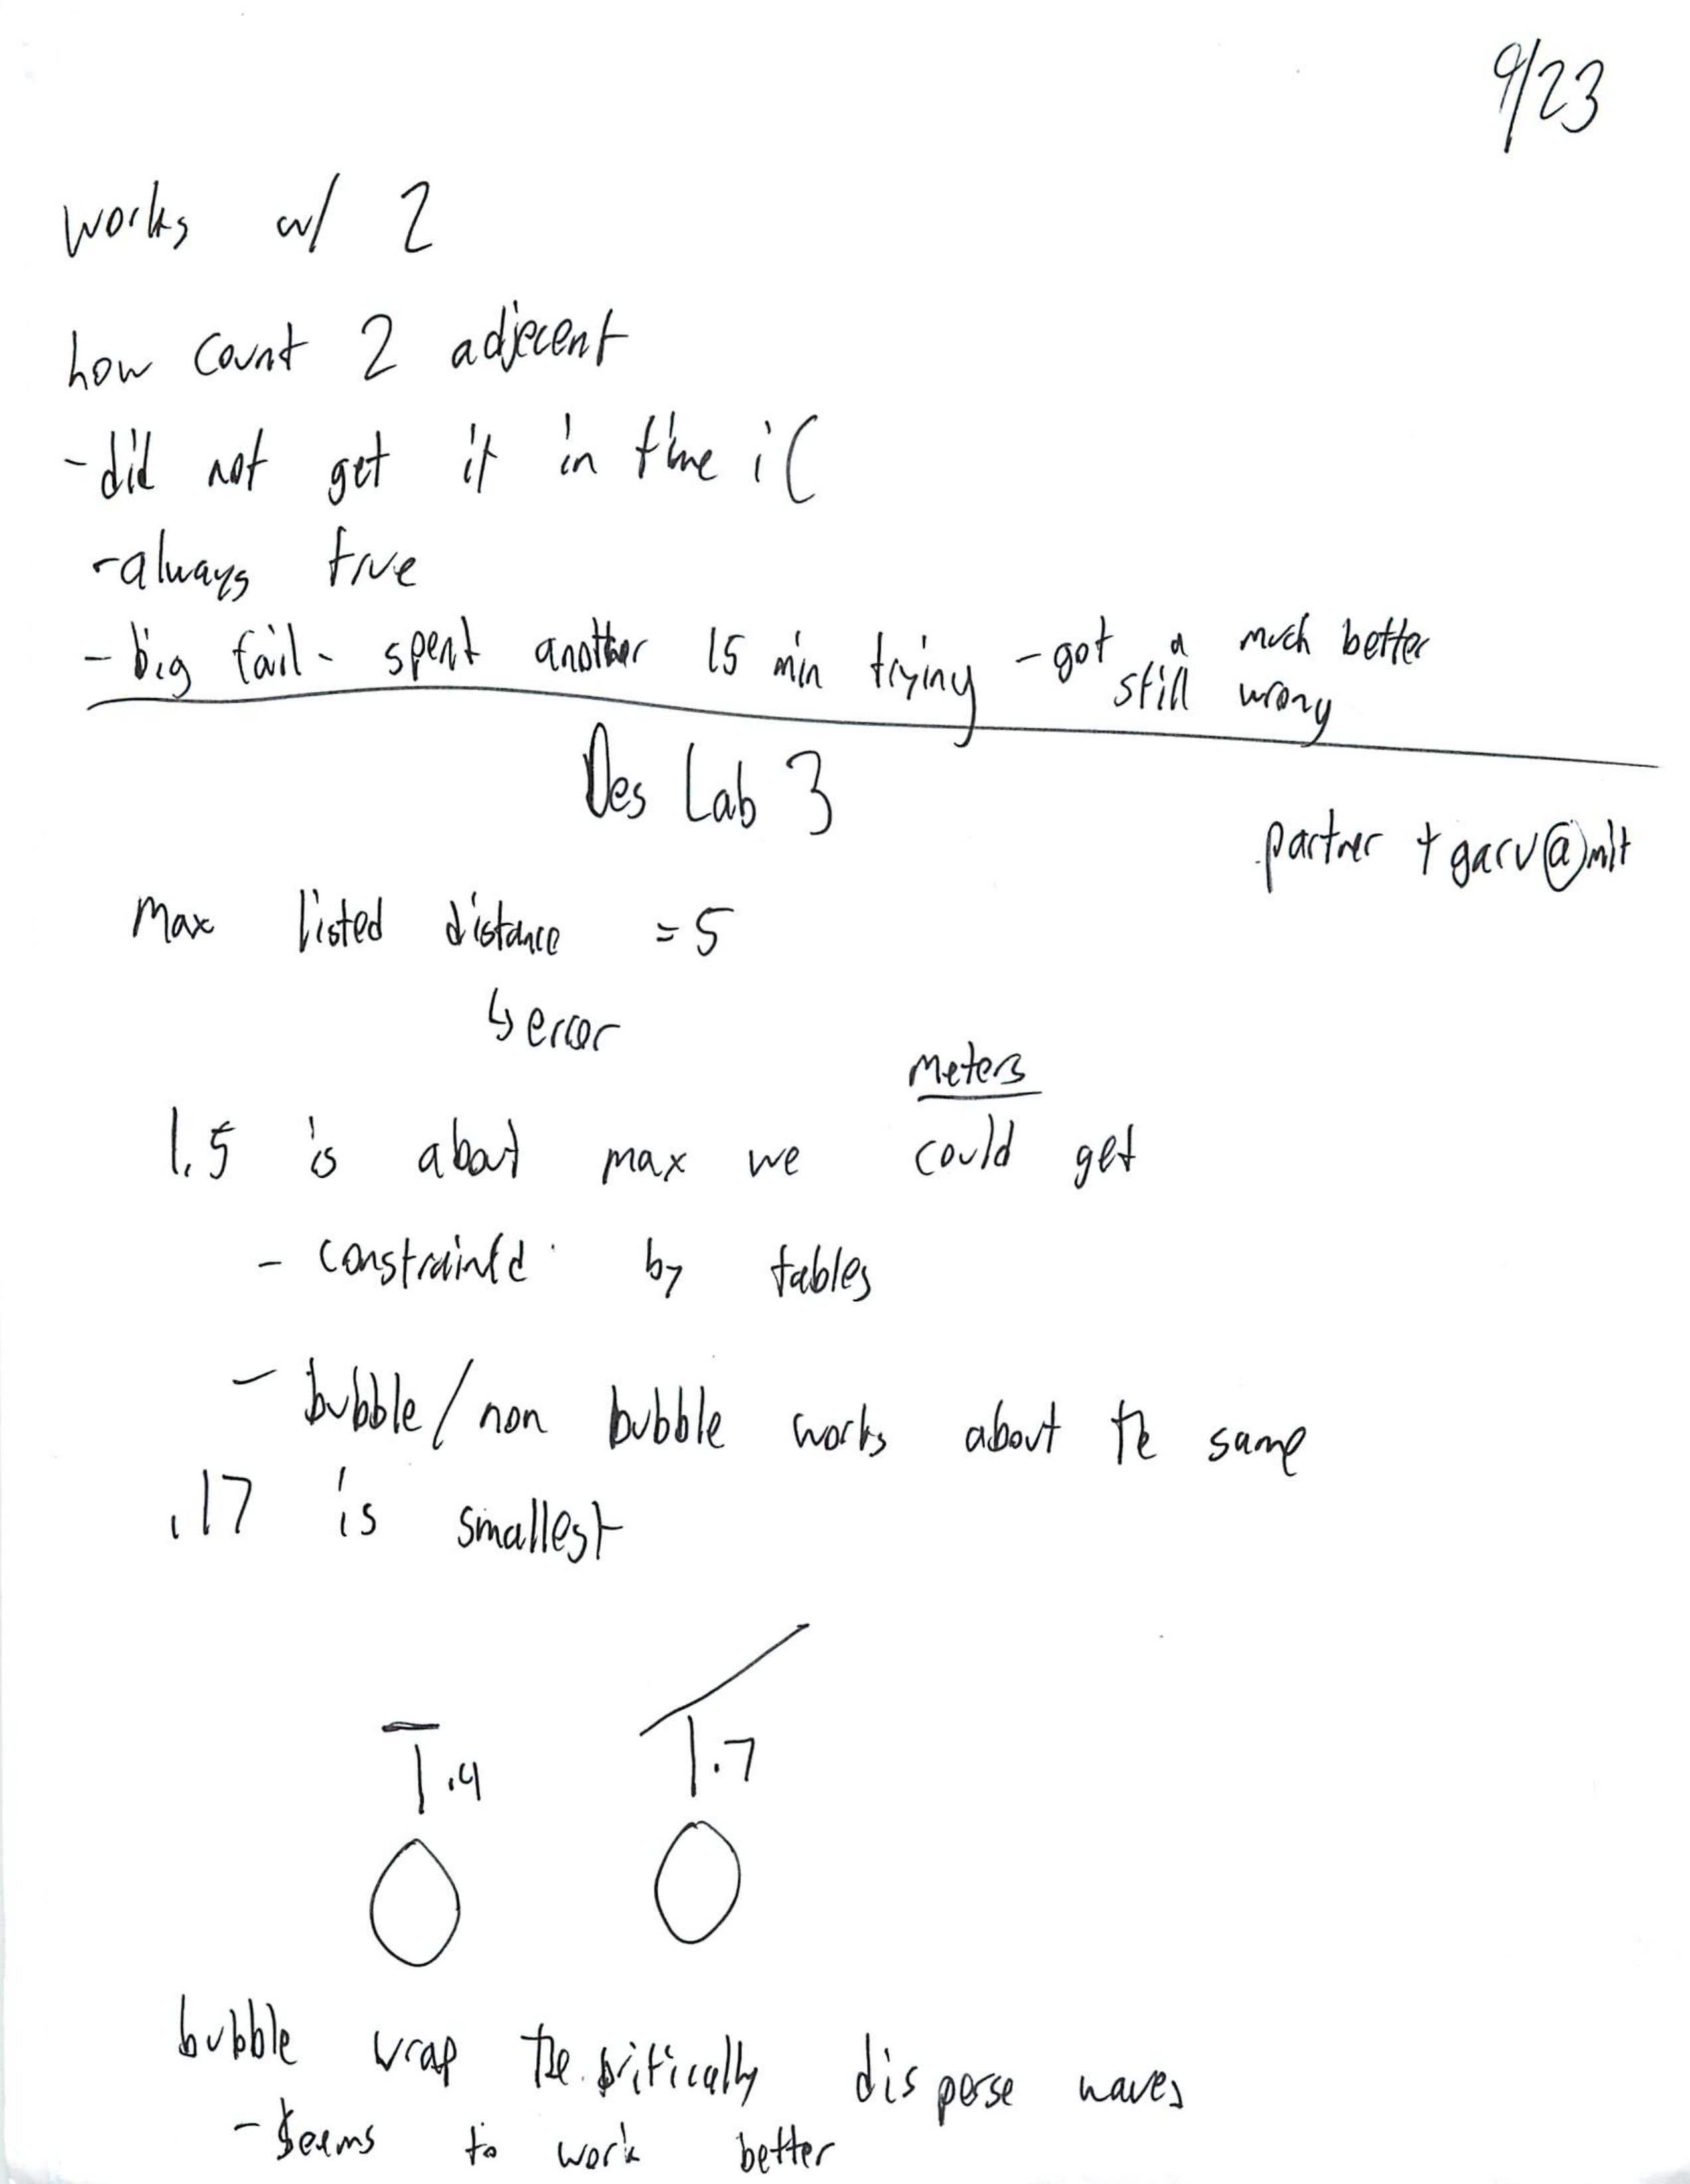 9/23
works w/ 2
how count 2 adjecent
-did not get it in time :(
-always true
-big fail- spent another 15 min trying -got a much better
still wrong
Des Lab 3
partner tgarv@mit
Max listed distance =5
↳ error
meters
1.5 is about max we could get
- constrainted by tables
- bubble/non bubble works about the same
.17 is smallest
.4 .7
bubble wrap disperse waves
-seems to work better